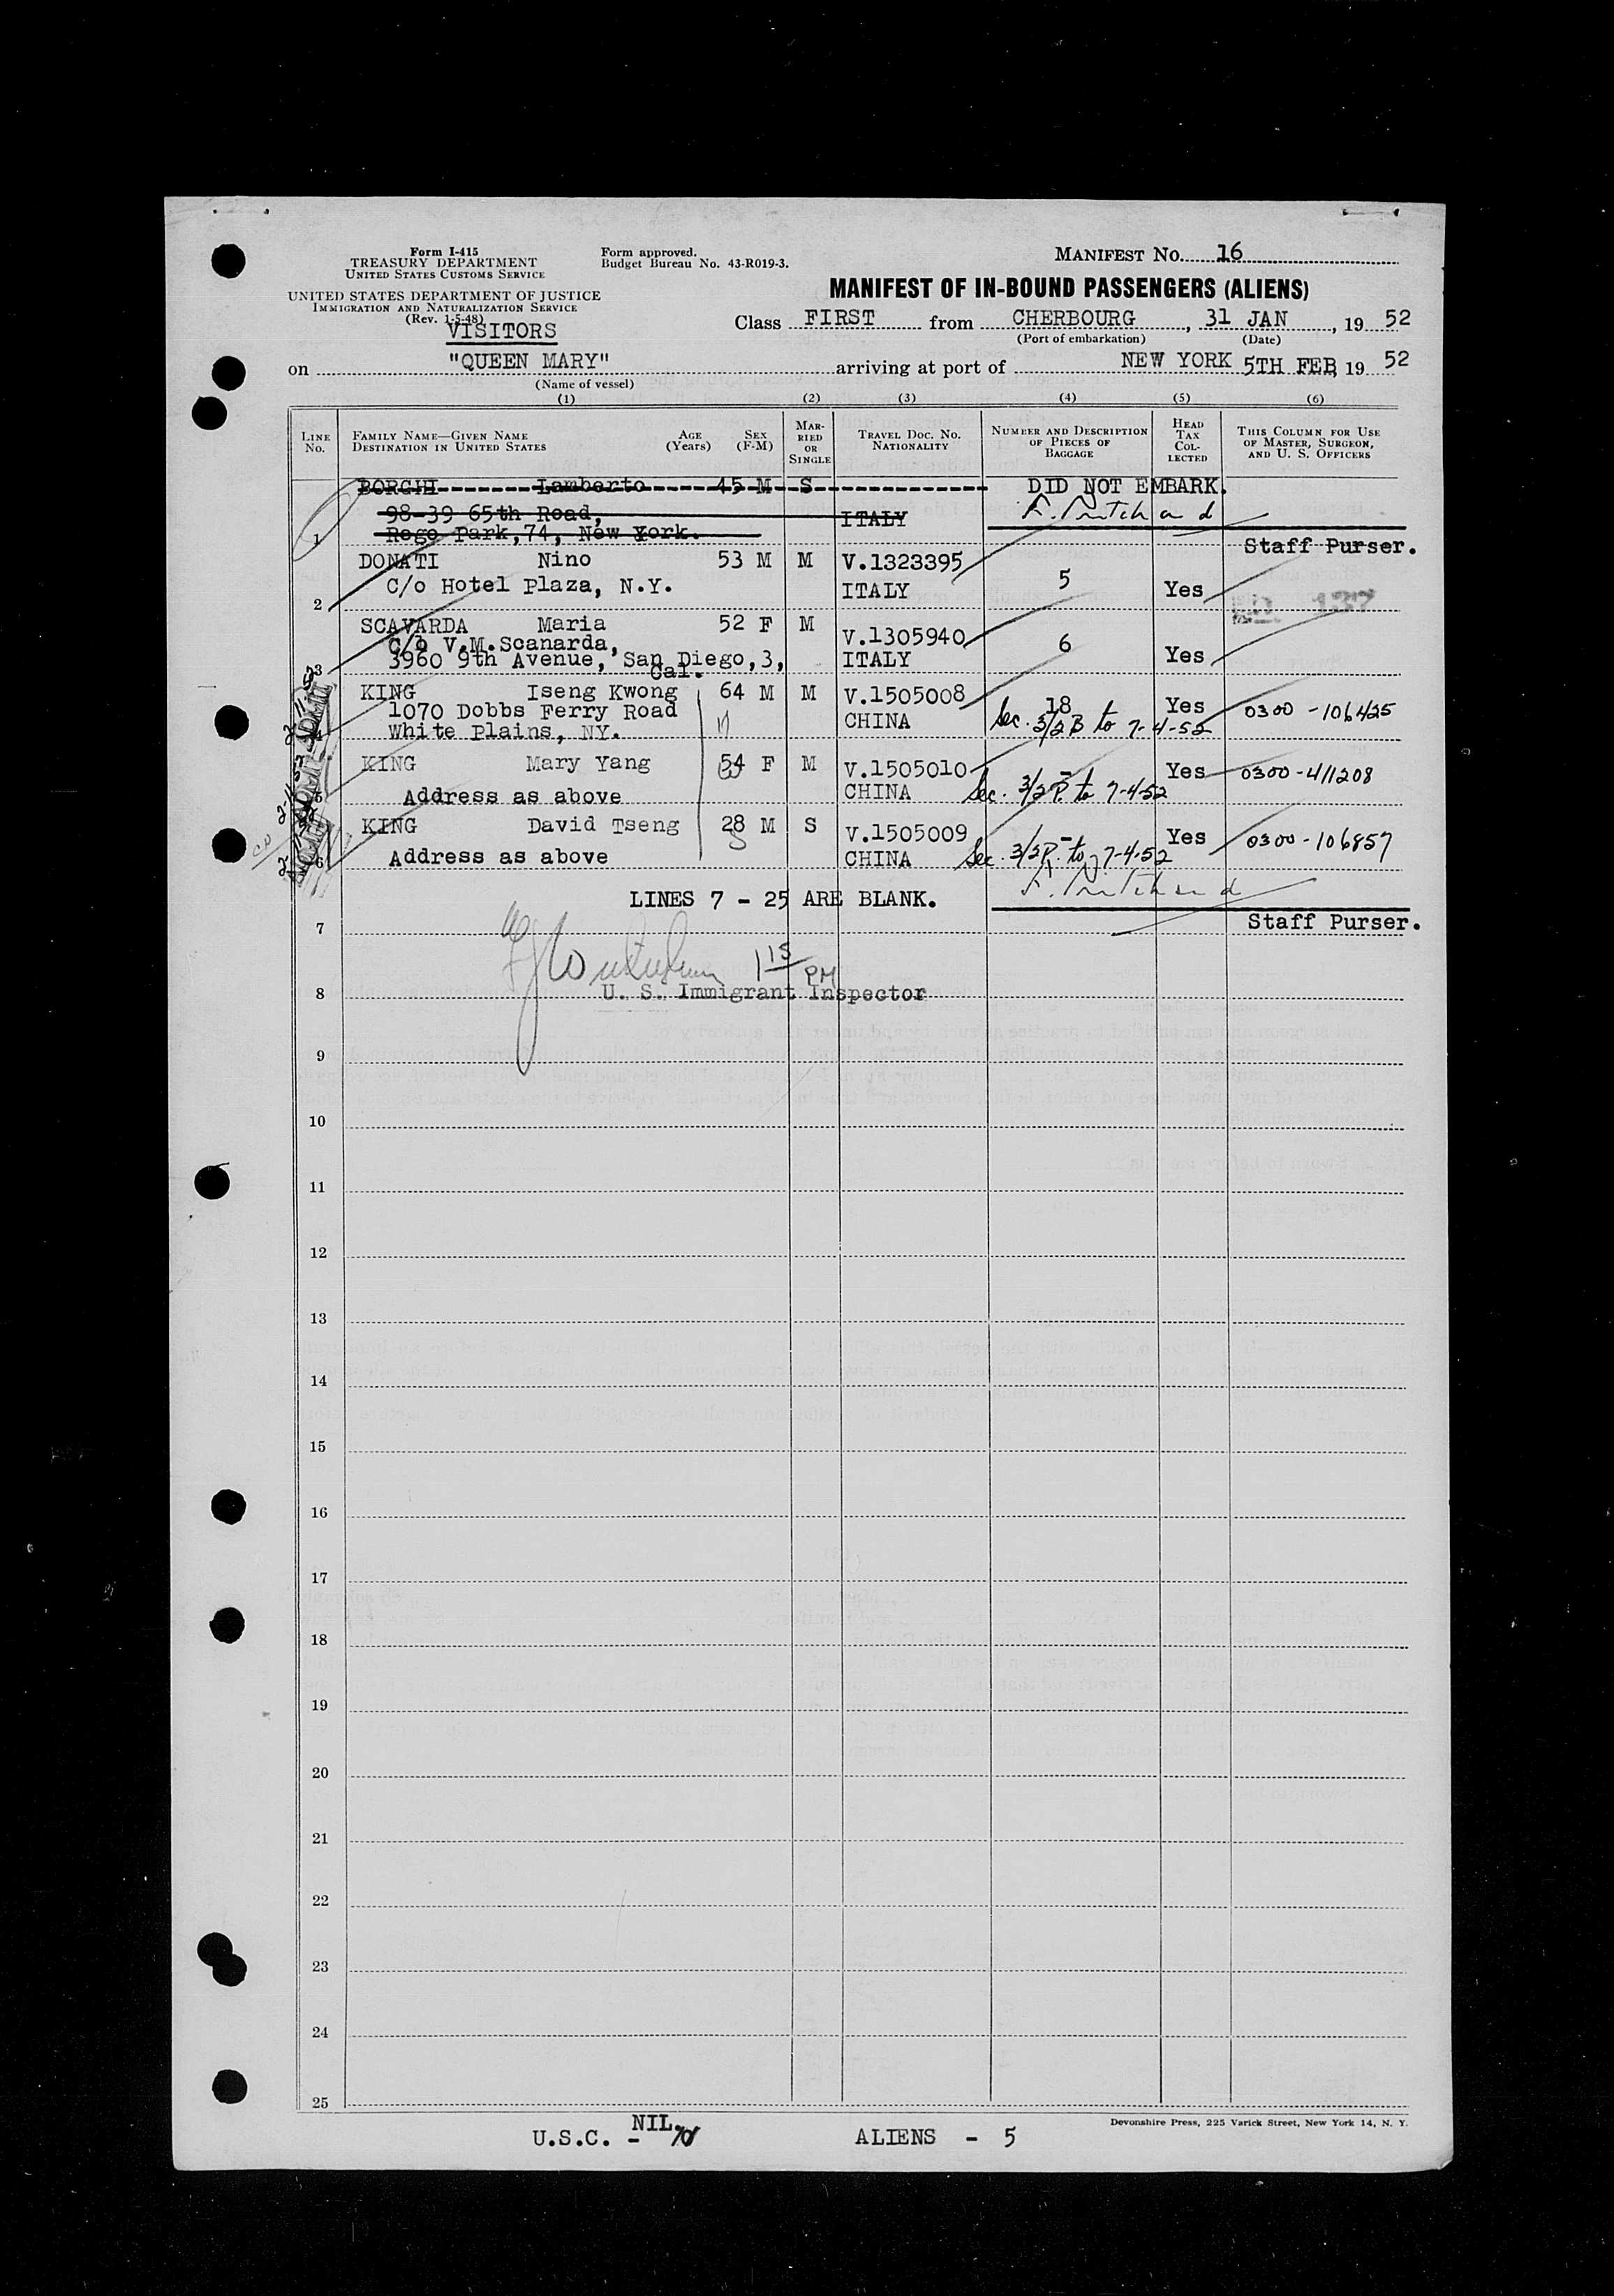 Form I-415
TREASURY DEPARTMENT
UNITED STATES CUSTOMS SERVICE
Form approved.
Budget Bureau No. 43-R019-3.
MANIFEST NO. 16
UNITED STATES DEPARTMENT OF JUSTICE
IMMIGRATION AND NATURALIZATION SERVICE
(Rev. 1-5-48)
VISITORS
MANIFEST OF IN-BOUND PASSENGERS (ALIENS)
Class FIRST from CHERBOURG, 31 JAN, 19 52
(Port of embarkation) (Date)
on "QUEEN MARY" arriving at port of NEW YORK 5TH FEB 19 52
(Name of vessel)
(1) (2) (3) (4) (5) (6)
LINE NO. FAMILY NAME—GIVEN NAME DESTINATION IN UNITED STATES AGE (Years) SEX (F-M) MARRIED OR SINGLE TRAVEL DOC. NO. NATIONALITY NUMBER AND DESCRIPTION OF PIECES OF BAGGAGE HEAD TAX COLLECTED THIS COLUMN FOR USE OF MASTER, SURGEON, AND U. S. OFFICERS
BORGHI Lamberto 45 M S DID NOT EMBARK.
98-39 65th Road, ITALY
1 Rego Park,74, New York.
Staff Purser.
DONATI Nino 53 M M V.1323395 5
2 C/o Hotel Plaza, N.Y. ITALY Yes
137
SCAVARDA Maria 52 F M V.1305940 6
C/o V.M.Scanarda,
3 3960 9th Avenue, San Diego,3, ITALY Yes
Cal.
KING Iseng Kwong 64 M M V.1505008 18 Yes 0300-106425
1070 Dobbs Ferry Road CHINA Sec. 3/2B to 7-4-52
4 White Plains, NY.
KING Mary Yang 54 F M V.1505010 - Yes 0300-411208
5 Address as above CHINA Sec. 3/2B. to 7-4-52
KING David Tseng 28 M S V.1505009 - Yes 0300-106857
S
6 Address as above CHINA Sec. 3/2B. to 7-4-52
LINES 7 - 25 ARE BLANK.
7 Staff Purser.
1 15 PM
8 U. S. Immigrant Inspector
9
10
11
12
13
14
15
16
17
18
19
20
21
22
23
24
25
Devonshire Press, 225 Varick Street, New York 14, N. Y.
U.S.C. - NIL. ALIENS - 5